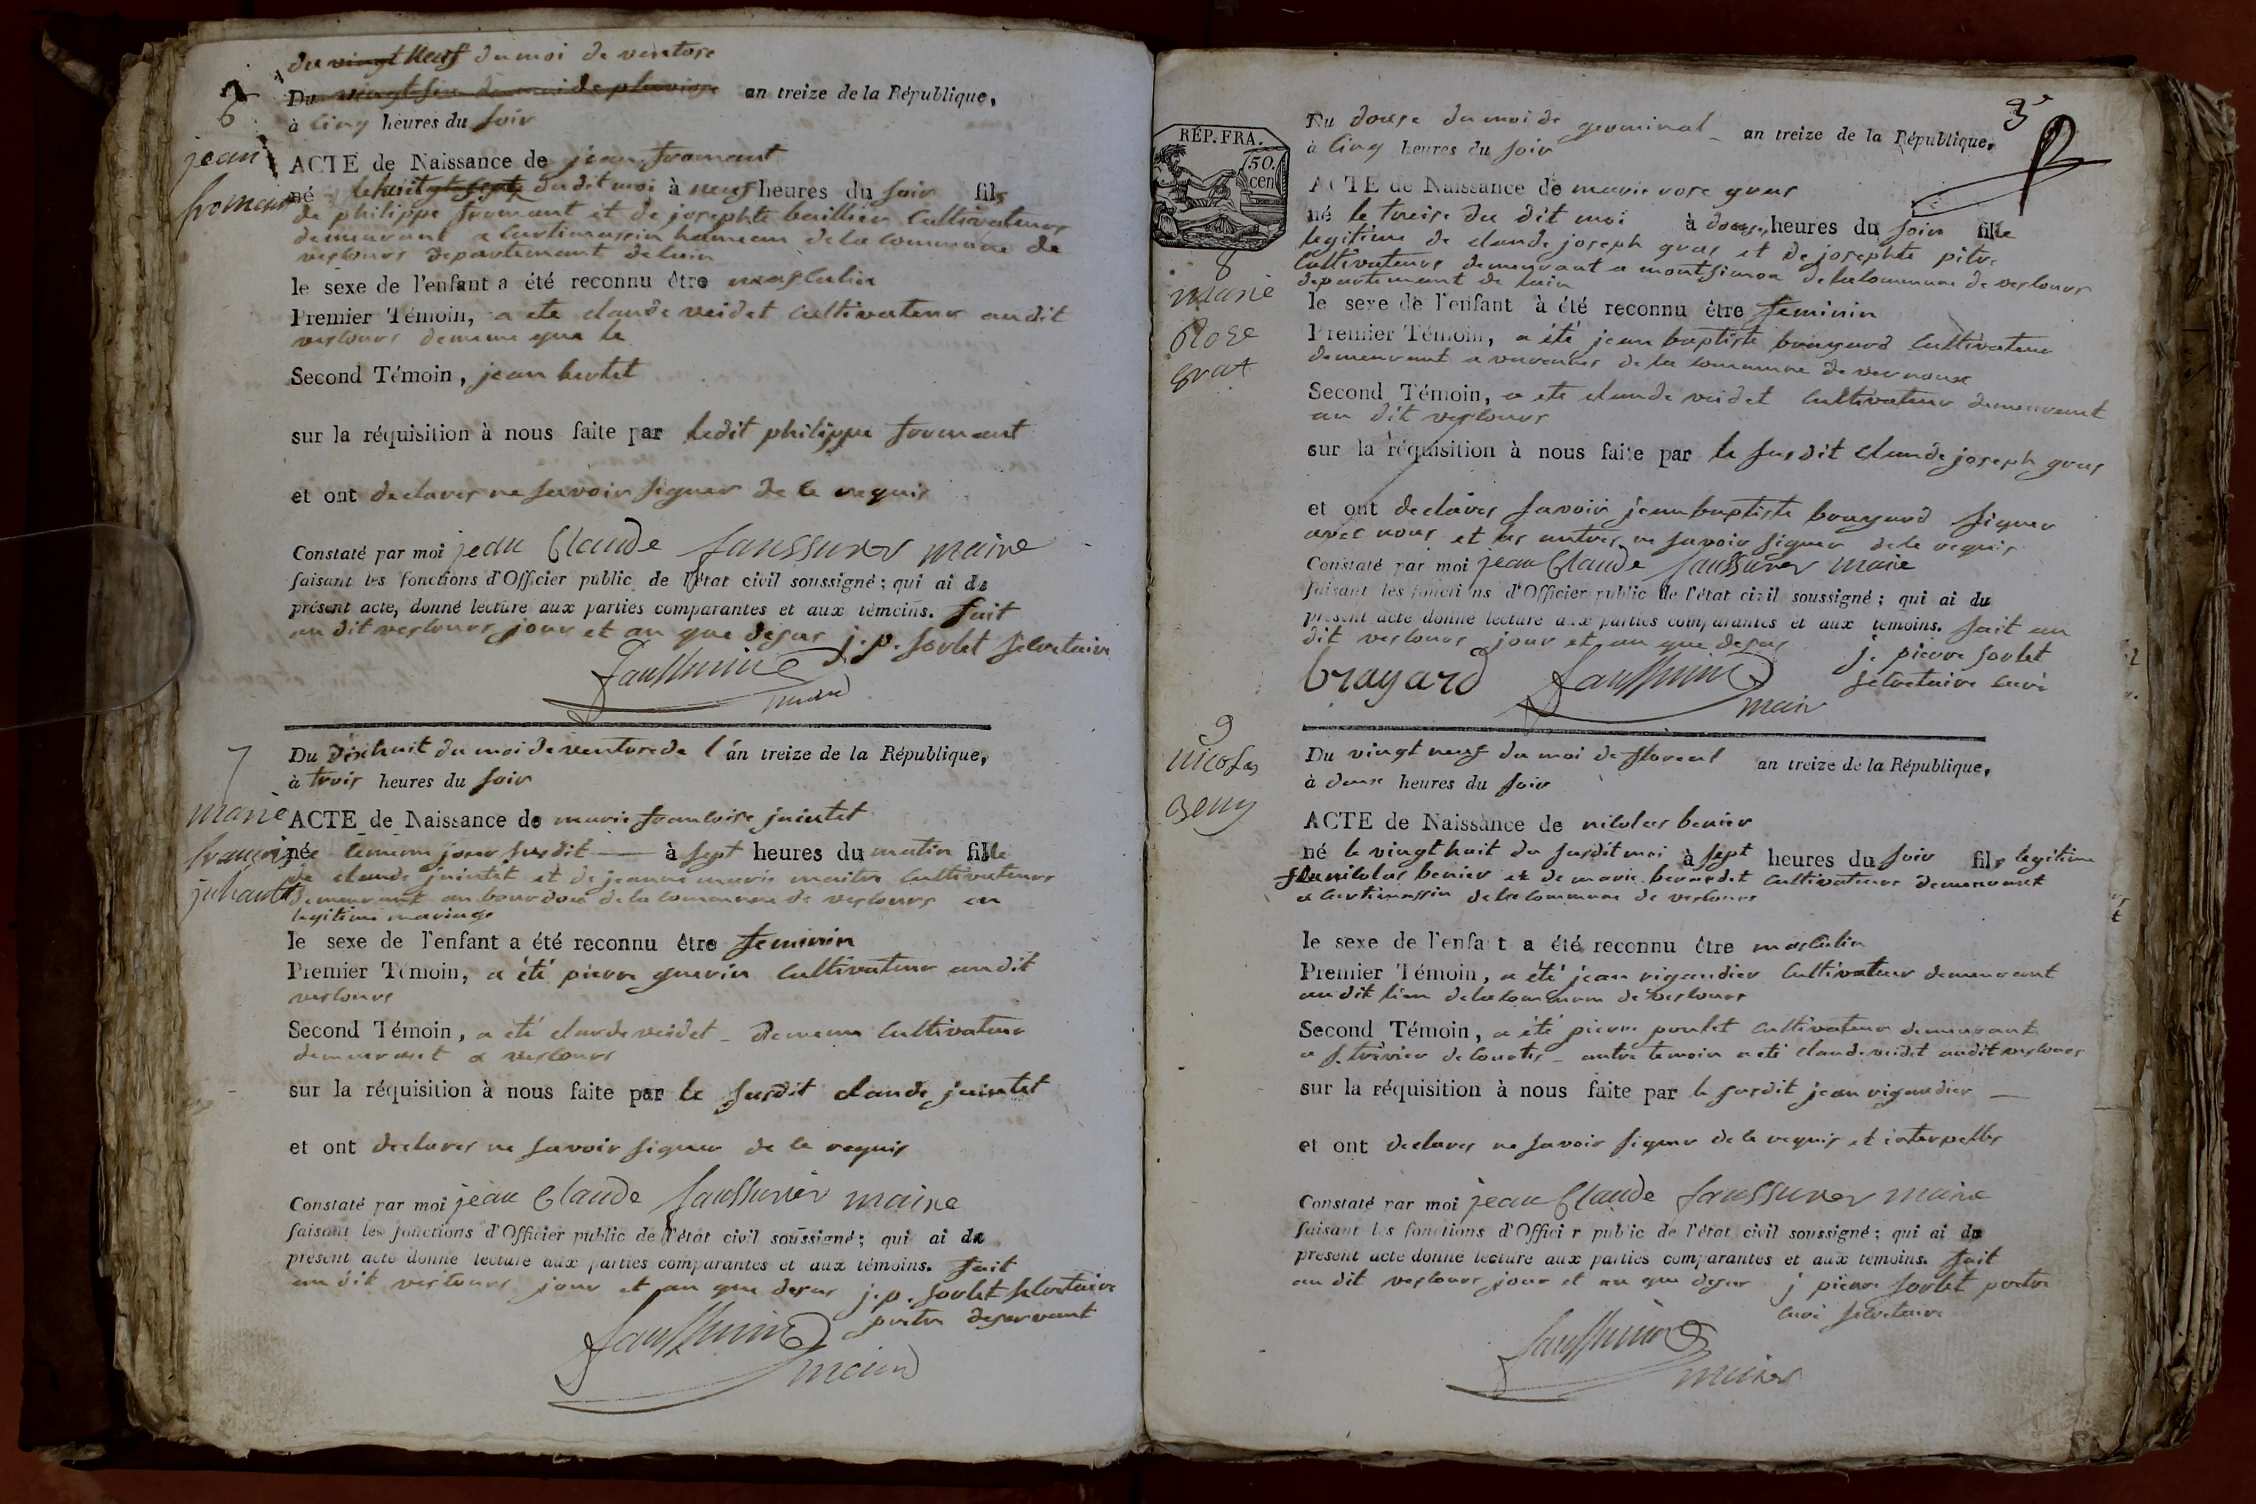 du vingt neuf du moi de ventose
6
Du vingt six du moi de pluviose an treize de la République,
à cinq heures du soir
jean
fromant
ACTE de Naissance de jean fromant
né le huit dudit moi à neuf heures du soir fils
de philippe fromant et de josephte baillier cultivateurs
demeurant a cartimassin hameau de la commune de
verlours departement de lain
le sexe de l'enfant a été reconnu être masculin
Premier Témoin, a ete claude veidet cultivateur audit
verlours de meme que le
Second Témoin, jean bertet
sur la réquisition à nous faite par ledit philippe fromant
et ont declares ne savoir signer de le requis
Constaté par moi jean Claude faussurier maire
faisant les fonctions d'Officier public de l'état civil soussigné; qui ai du
présent acte, donné lecture aux parties comparantes et aux témoins. fait
au dit verlours jour et an que desus j. p. sorlet secretaire
faussurier
maire
7
Du dixhuit du moi de ventose de l'an treize de la République,
à trois heures du soir
marie
françoise
ACTE de Naissance de marie francoise juintet
née le meme jour susdit à sept heures du matin fille
de claude juintet et de jeanne marie maitre cultivateurs
demeurant au bourdon de la commune de verlours en
legitime mariage
le sexe de l'enfant a été reconnu être feminin
Premier Témoin, a été pierre guerin cultivateur audit
verlours
Second Témoin, a été claude veidet de meme cultivateur
demeurant a verlours
sur la réquisition à nous faite par le susdit claude juintet
et ont declares ne savoir signer de le requis
Constaté par moi jean Claude faussurier maire
faisant les fonctions d'Officier public de l'état civil soussigné; qui ai du
présent acte donné lecture aux parties comparantes et aux témoins. fait
au dit verlours jour et an que desus j. p. sorlet secretaire
pretre deservant
faussurier
maire
3e
RÉP. FRA.
50
cen
Du douse du moi de germinal an treize de la République,
à cinq heures du soir
8
marie
Rose
grat
ACTE de Naissance de marie rose gras
né le treise du dit moi à douse heures du soir fille
legitime de claude joseph gras et de josephte pitre
cultivateurs demeurant a montsimon de la commune de verlours
departement de lain
le sexe de l'enfant à été reconnu être feminin
Premier Témoin, a été jean baptiste brayard cultivateur
demeurant a varennes de la commune de vernoux
Second Témoin, a ete claude veidet cultivateur demeurant
au dit verlours
sur la réquisition à nous faite par le susdit claude joseph gras
et ont declares savoir jean baptiste brayard signer
avec nous et les autres ne savoir signer de le requis
Constaté par moi jean Claude faussurier maire
faisant les fonctions d'Officier public de l'état civil soussigné; qui ai du
présent acte donné lecture aux parties comparantes et aux témoins. fait au
dit verlours jour et an que desus
brayard faussurier j. pierre sorlet
maire secretaire curé
9
nicolas
Du vingt neuf du moi de floreal an treize de la République,
à deux heures du soir
ACTE de Naissance de nicolas benier
né le vingt huit du susdit moi à sept heures du soir fils legitime
de nicolas benier et de marie bernadet cultivateurs demeurant
a cartimassin de la commune de verlours
le sexe de l'enfant a été reconnu être masculin
Premier Témoin, a été jean rigaudier cultivateur demeurant
au dit lieu de la commune de verlours
Second Témoin, a été pierre poulet cultivateur demeurant
a s. trivier de courtes autre temoin a été claude veidet audit verlours
sur la réquisition à nous faite par le susdit jean rigaudier
et ont declares ne savoir signer de le requis et interpelles
Constaté par moi jean Claude faussurier maire
faisant les fonctions d'Officier public de l'état civil soussigné; qui ai du
présent acte donné lecture aux parties comparantes et aux témoins. fait
au dit verlours jour et an que desus j pierre sorlet pretre
curé secretaire
faussurier
maire